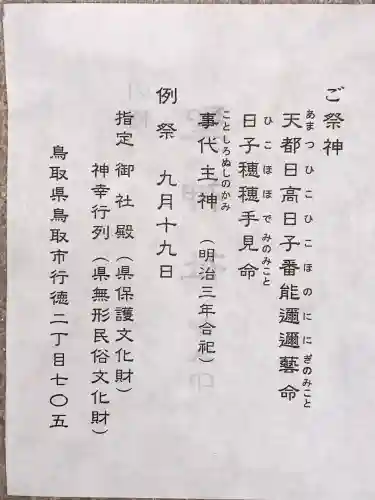 ご祭神
天都日高日子番能邇邇藝命
あまつひこひこほのににぎのみこと
日子穂穂手見命
ひこほほでみのみこと
事代主神（明治三年合祀）
ことしろぬしのかみ
例祭 九月十九日
指定 御社殿（県保護文化財）
神幸行列（県無形民俗文化財）
鳥取県鳥取市行徳二丁目七〇五